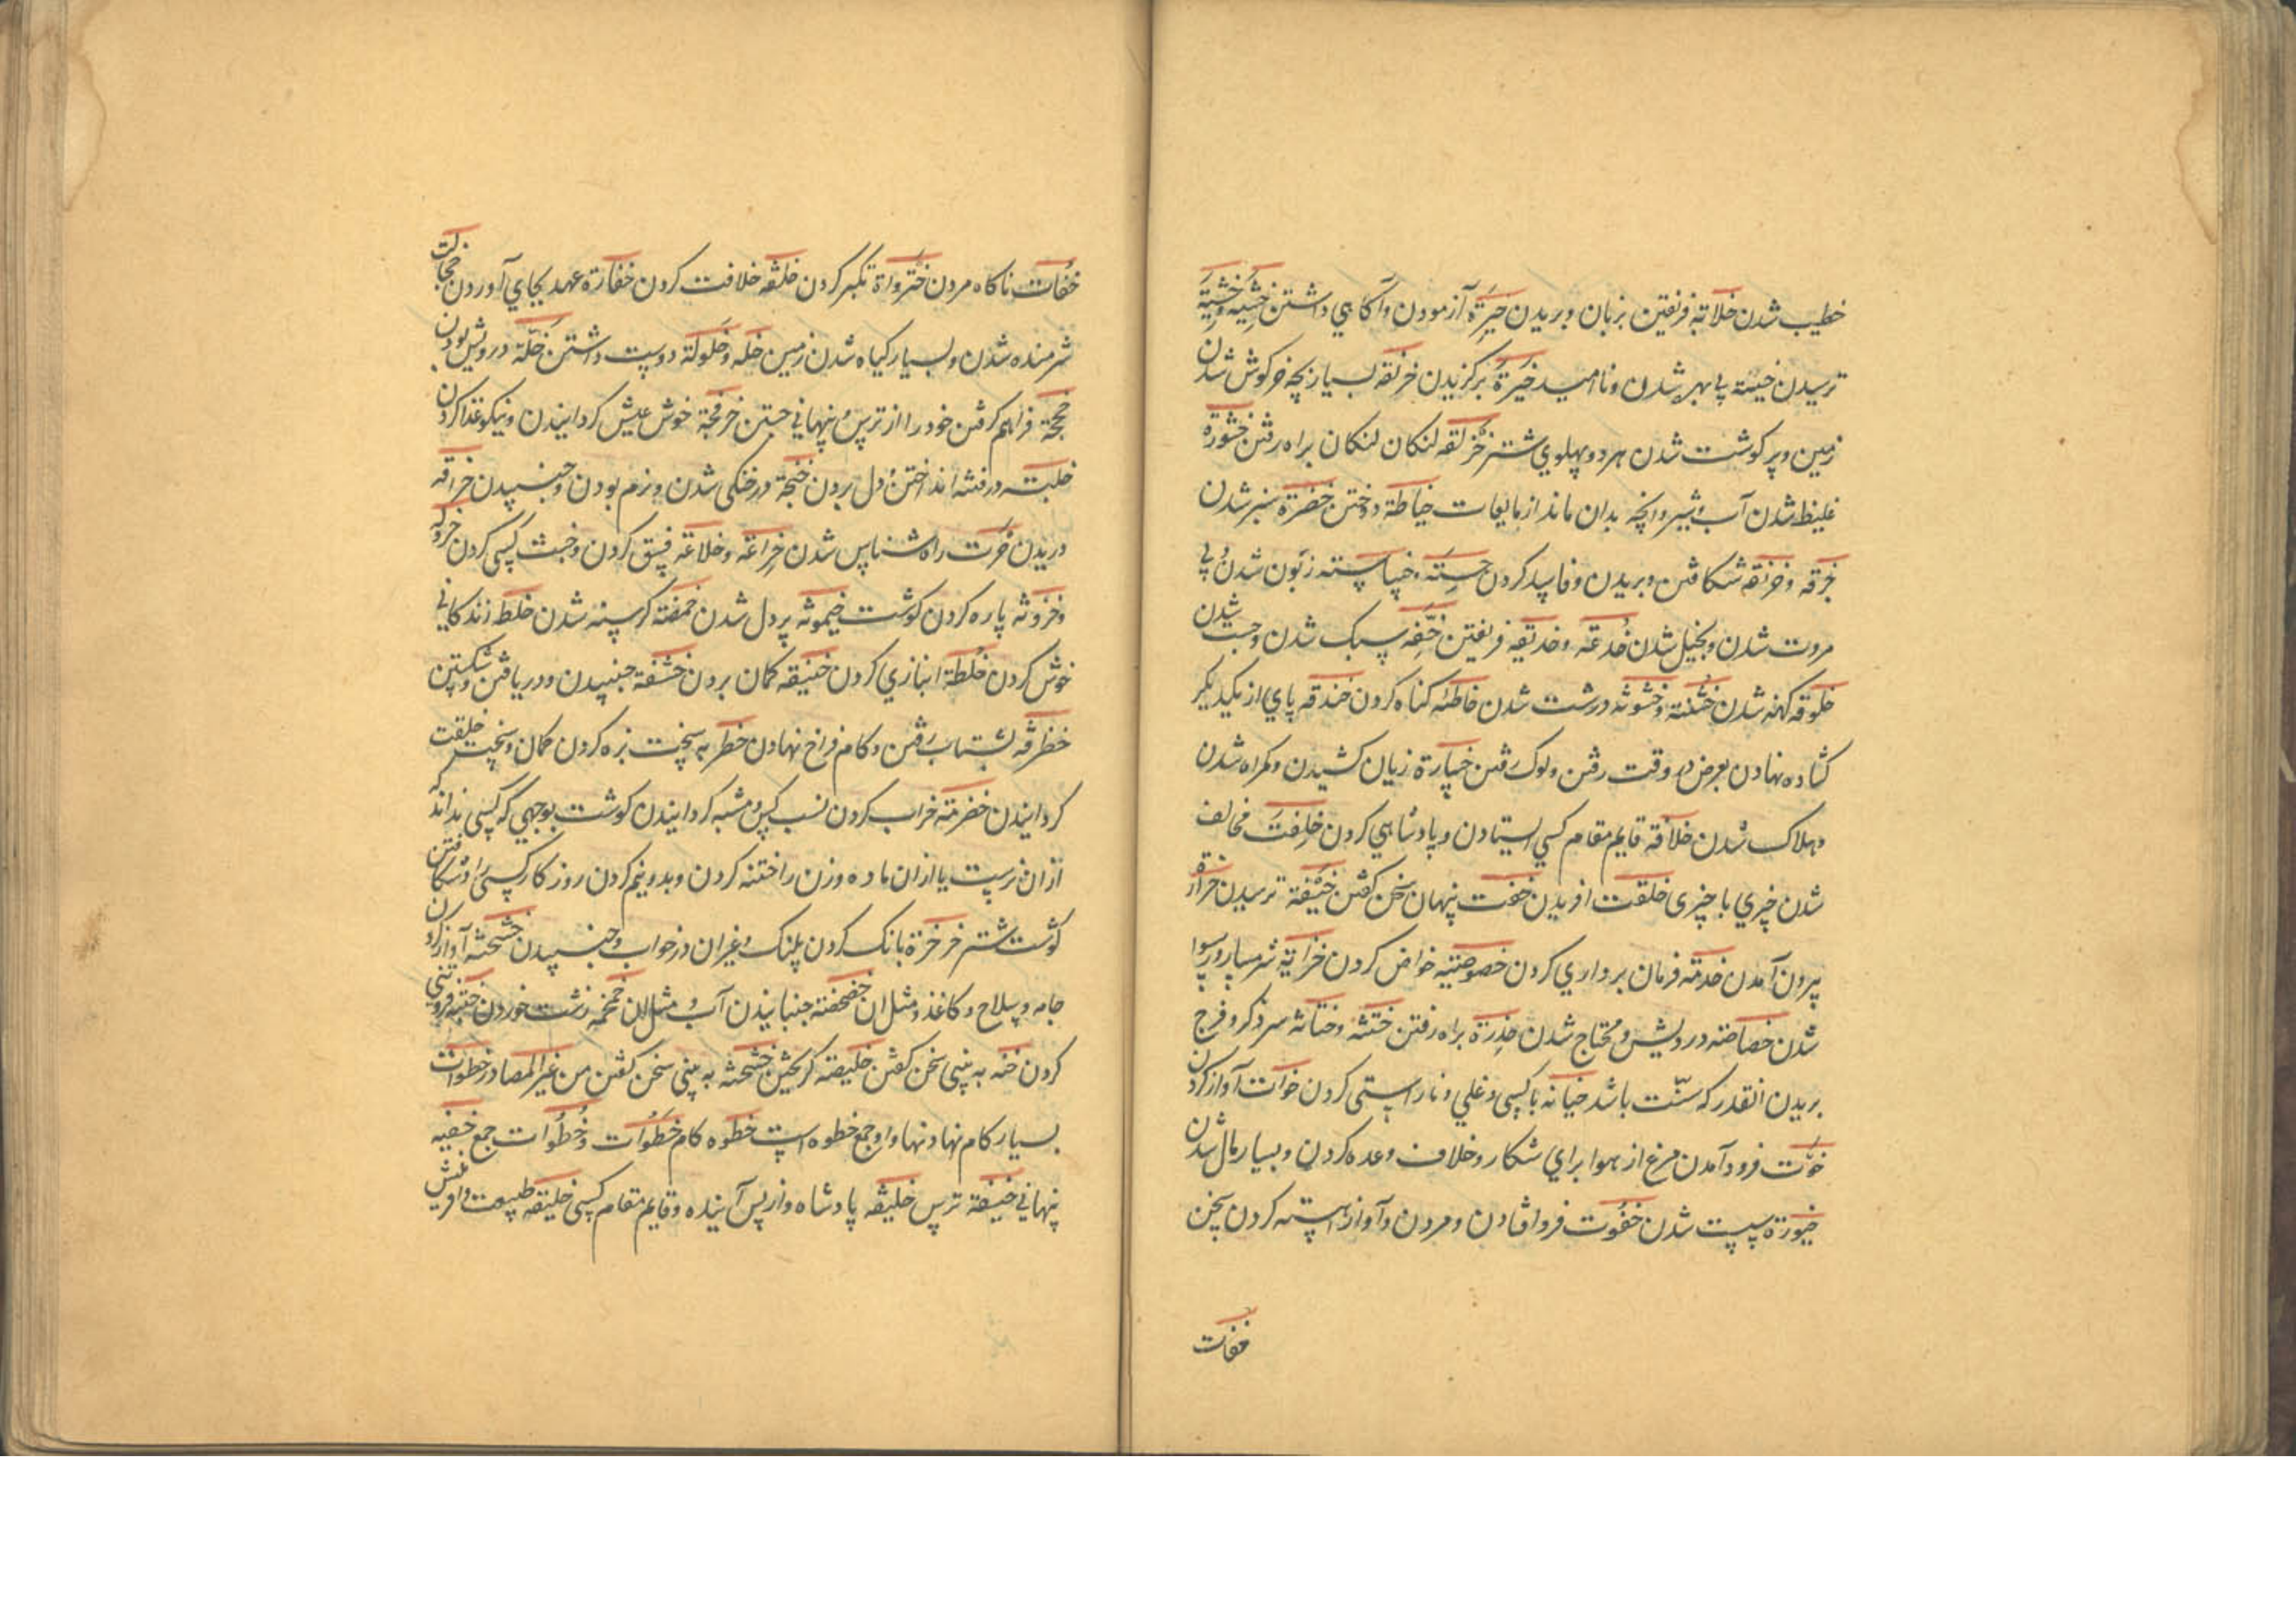 خطیب شدن خلابة فریفتن بزبان و بریدن خبرة آزمودن و آکاهی داشتن خشیه و خشیة
ترسیدن خیبة بی بهره شدن و نا امید خیرة برکزیدن خرنقه بسیار بچه خرکوش شدن
زمین و پر کوشت شدن هر دو پهلوی شتر خزلقه لنکان لنکان براه رفتن خثورة
غلیظ شدن آب و شیر و آنچه بدان ماند از مایعات خیاطة دوختن خضرة سبز شدن
خرقه و خزقه شکافتن و بریدن و فاسد کردن خسته خساسته زبون شدن و بی
مروت شدن و بخیل شدن خدعة و خدیعة فریفتن خفه سبک شدن و چست شدن
خلوقه کهنه شدن خشنة و خشونة درشت شدن خاطئه کناه کردن خندقه پای از یکدیکر
کشاده نهادن بعرض در وقت رفتن و لوک رفتن خسارة زیان کشیدن و کمراه شدن
و هلاک شدن خلافة قایم مقام کسی ایستادن و پادشاهی کردن خلفت مخالف
شدن چیزی با چیزی خلقت افریدن خفت پنهان سخن کفتن خیفة ترسیدن
بیرون آمدن خدمة فرمان برداری کردن خصوصیة خواص کردن خزایة شرمسار و رسوا
شدن خصاصة درویش و محتاج شدن براه رفتن ختنه و ختانه سر ذکر و فرج
بریدن انقدر که سنّت باشد خیانة با کسی دغلی و ناراستی کردن خوات آواز کردن
خوت فرود آمدن مرغ از هوا برای شکار و خلاف وعده کردن و بسیار مال شدن
سست شدن خفوت فرو افتادن و مردن و آواز اهسته کردن بسخن
خفات
خفات ناکاه مردن تکبر کردن خلفه خلافت کردن خفارة عهد بجای آوردن خجالت
شرمنده شدن و بسیار کیاه شدن زمین خله و خلولة دوست داشتن خلّة درویش بودن
فراهم کرفتن خود را از ترس و پنهانی جستن خرفجة خوش عیش کردانیدن و نیکو غذا کردن
خلبة در فتنه انداختن و دل بردن در خنکی شدن و نرم بودن و جنبیدن خراقه
دریدن خرت راه شناس شدن خراعة و خلاعة فسق کردن و خبث کسی کردن
پاره کردن کوشت پر دل شدن خمصة کرسنه شدن خلط زندکانی
خوش کردن خلطة انبازی کردن کمان بردن خشفة جنبیدن و در یافتن و شکستن
خظرفه بشتاب رفتن و کام فراخ نهادن به سخت بزه کردن کمان و سخت خلقت
کردانیدن خضرمة خراب کردن نسب کس و مشبه کردانیدن کوشت بوجهی که کسی نداند که
ازان نرست یا ازان ماده و زن را ختنه کردن و بدو نیم کردن روزکار کسی را و شکافتن
کوشت شتر خرخرة بانک کردن پلنک و غیر ان در خواب و جنبیدن خشخشة آواز کردن
جامه و سلاح و کاغذ و مثل ان خضخضة جنبانیدن آب و مثل ان خمخمه زشت خوردن فروتنی
کردن خنه به بینی سخن کفتن کریختن خنخنة به بینی سخن کفتن من غیر المصادر خطوات
بسیار کام نهاد نهاد او جمع خطوه است خطوه کام خطوات و خطوات جمع خفیه
پنهانی خیفة ترس خلیفه پادشاه و از پس آینده و قایم مقام کسی خلیقه طبیعت و افرینش